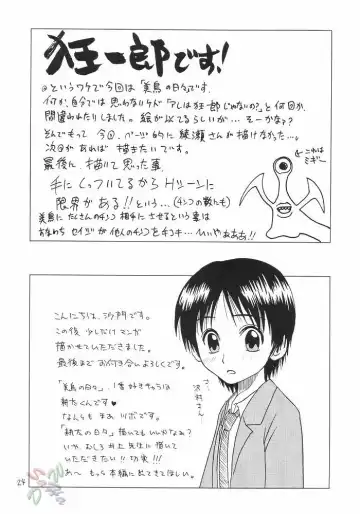 狂一郎です!
というワケで今回は「美鳥の日々」です。
何か、自分では思わないケド「アレは狂一郎じゃないの?」と何回か
間違われたりしました。絵が似てるらしいが…そーかなァ?
そんでもって今回、ページ的に綾瀬さんが描けなかった…。
次回があれば描きたいです。
最後に、描いて思った事
手にくっついてるからHシーンに
限界がある!!という…(4コマの都合も)
美鳥に
すなわちセイジが
これは
ミギー
こんにちは、沙門です。
この後少しだけマンガ
描かせていただきました。
最後までお付き合いよろしくです。
『美鳥の日々』、1番好きキャラは
耕太くんです♥
なんつうかまあツボです。
『耕太の日々』描いてもいいかなぁ?
いや、むしろ井上先生に描いて
いただきたい!!切実!!
あ〜もっと本編に出てきてほしい。
沢村さん
24